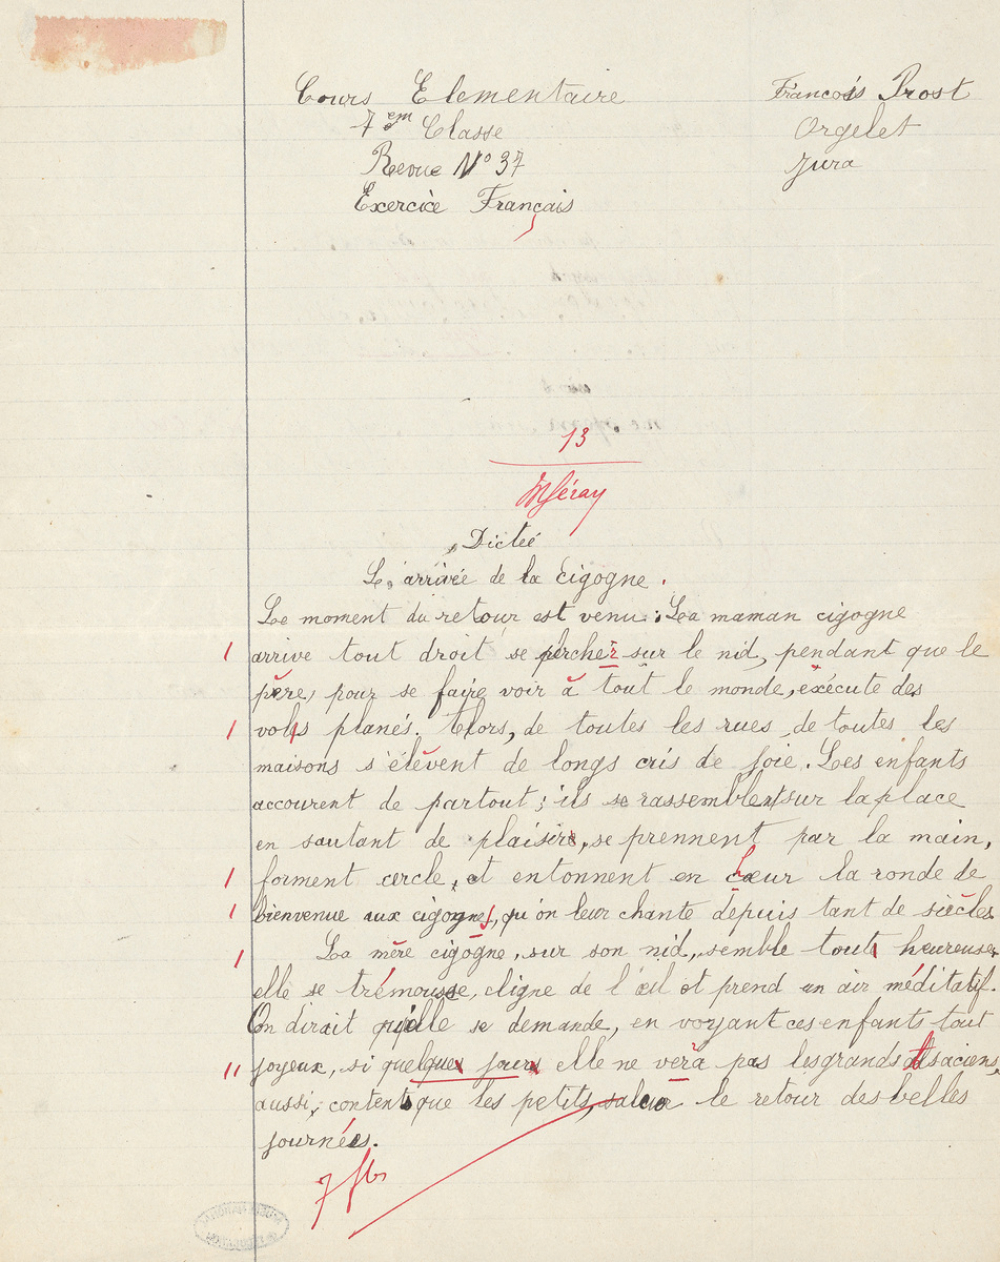 Cours Elementaire
François Prost
7em Classe
Orgelet
Revue No 37
Jura
Exercice Français
13
Dicteé
L'arrivée de la cigogne.
Le moment du retour est venu : La maman cigogne
arrive tout droit se percher sur le nid, pendant que le
père, pour se faire voir à tout le monde, exécute des
vols planés. Alors, de toutes les rues, de toutes les
maisons s'élèvent de longs cris de joie. Les enfants
accourent de partout ; ils se rassemblent sur la place
en sautant de plaisir, se prennent par la main,
forment cercle, et entonnent en chœur la ronde de
bienvenue aux cigognes, qu'on leur chante depuis tant de siècles
La mère cigogne, sur son nid, semble tout heureuse,
elle se trémousse, cligne de l'œil et prend un air méditatif.
On dirait qu'elle se demande, en voyant ces enfants tout
joyeux, si quelques jours elle ne verà pas les grands alsaciens,
aussi, contents que les petits, saluer le retour des belles
journées.
7 fts